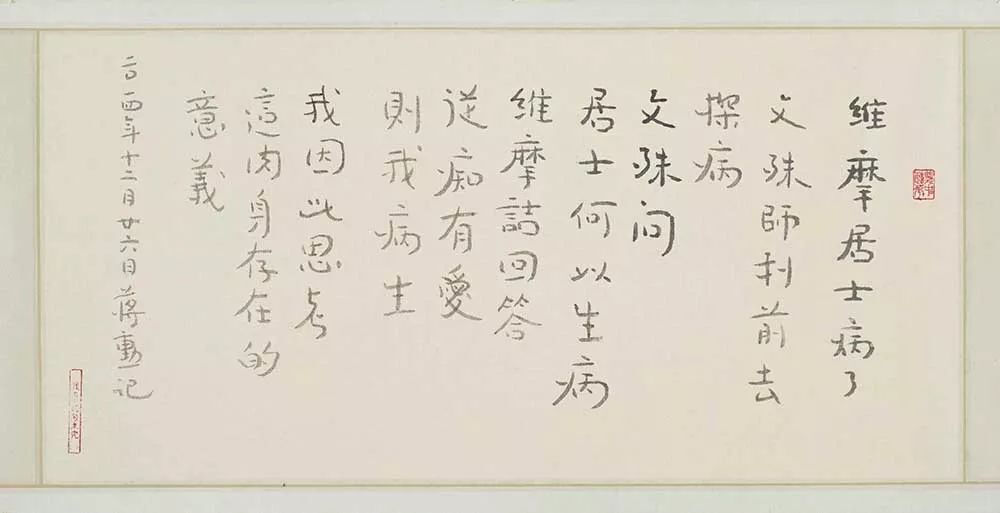 維摩居士病了
文殊師利前去
探病
文殊问
居士何以生病
維摩詰回答
從痴有愛
則我病生
我因此思考
這肉身存在的
意義
二〇一四年十二月廿六日蔣勳记